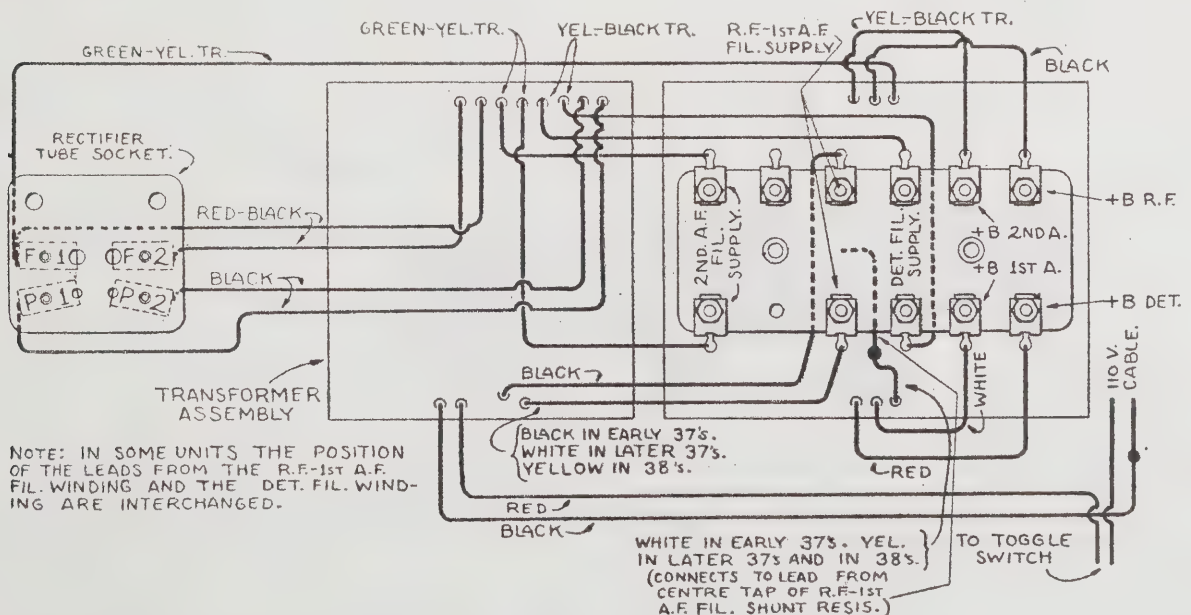 GREEN-YEL.TR.
YEL-BLACK TR.
R.F.-1ST A.F.
FIL. SUPPLY.
YEL-BLACK TR.
GREEN-YEL. TR.
BLACK
RECTIFIER
TUBE SOCKET.
RED-BLACK
F 1
F 2
BLACK
P 1
P 2
2ND. A.F.
FIL.
SUPPLY.
DET. FIL.
SUPPLY.
+B 2ND A.
+B 1ST A.
+B R.F.
+B DET.
110 V.
CABLE.
TRANSFORMER
ASSEMBLY
BLACK
WHITE
BLACK IN EARLY 37's.
WHITE IN LATER 37's.
YELLOW IN 38's.
RED
NOTE: IN SOME UNITS THE POSITION
OF THE LEADS FROM THE R.F.-1ST A.F.
FIL. WINDING AND THE DET. FIL. WIND-
ING ARE INTERCHANGED.
RED
BLACK
WHITE IN EARLY 37's. YEL.
IN LATER 37's AND IN 38's.
(CONNECTS TO LEAD FROM
CENTRE TAP OF R.F.-1ST
A.F. FIL. SHUNT RESIS.)
TO TOGGLE
SWITCH